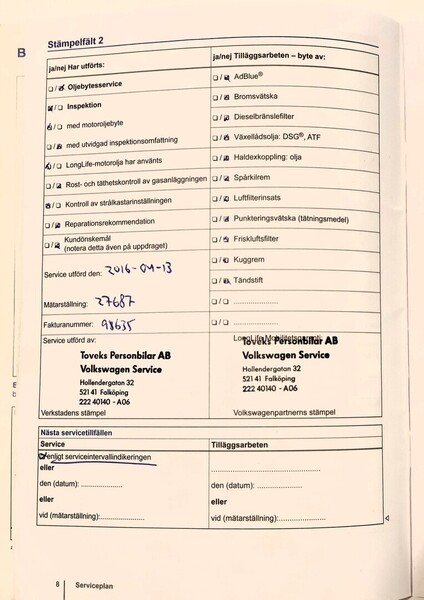 B
Stämpelfält 2
ja/nej Har utförts:
ja/nej Tilläggsarbeten – byte av:
☐ / ☒ Oljebytesservice
☐ / ☒ AdBlue®
☒ / ☐ Inspektion
☐ / ☒ Bromsvätska
☐ / ☒ Dieselbränslefilter
☒ / ☐ med motoroljebyte
☐ / ☒ Växellådsolja: DSG®, ATF
☐ / ☒ med utvidgad inspektionsomfattning
☐ / ☒ Haldexkoppling: olja
☒ / ☐ LongLife-motorolja har använts
☐ / ☒ Spårkilrem
☐ / ☒ Rost- och täthetskontroll av gasanläggningen
☐ / ☒ Luftfilterinsats
☒ / ☐ Kontroll av strålkastarinställningen
☐ / ☒ Punkteringsvätska (tätningsmedel)
☐ / ☒ Reparationsrekommendation
☐ / ☒ Friskluftsfilter
☐ / ☒ Kundönskemål
(notera detta även på uppdraget)
☐ / ☒ Kuggrem
Service utförd den: 2016-04-13
☐ / ☒ Tändstift
Mätarställning: 27687
☐ / ☐ ....................
Fakturanummer: 98635
☐ / ☐ ....................
Service utförd av:
LongLife Mobilitetsgaranti:
Toveks Personbilar AB
Volkswagen Service
Hollendergatan 32
521 41 Falköping
222 40140 - A06
Toveks Personbilar AB
Volkswagen Service
Hollendergatan 32
521 41 Falköping
222 40140 - A06
Verkstadens stämpel
Volkswagenpartnerns stämpel
Nästa servicetillfällen
Service
Tilläggsarbeten
☒ enligt serviceintervallindikeringen
eller
den (datum): ....................
den (datum): ....................
eller
eller
vid (mätarställning):....................
vid (mätarställning):....................
8
Serviceplan